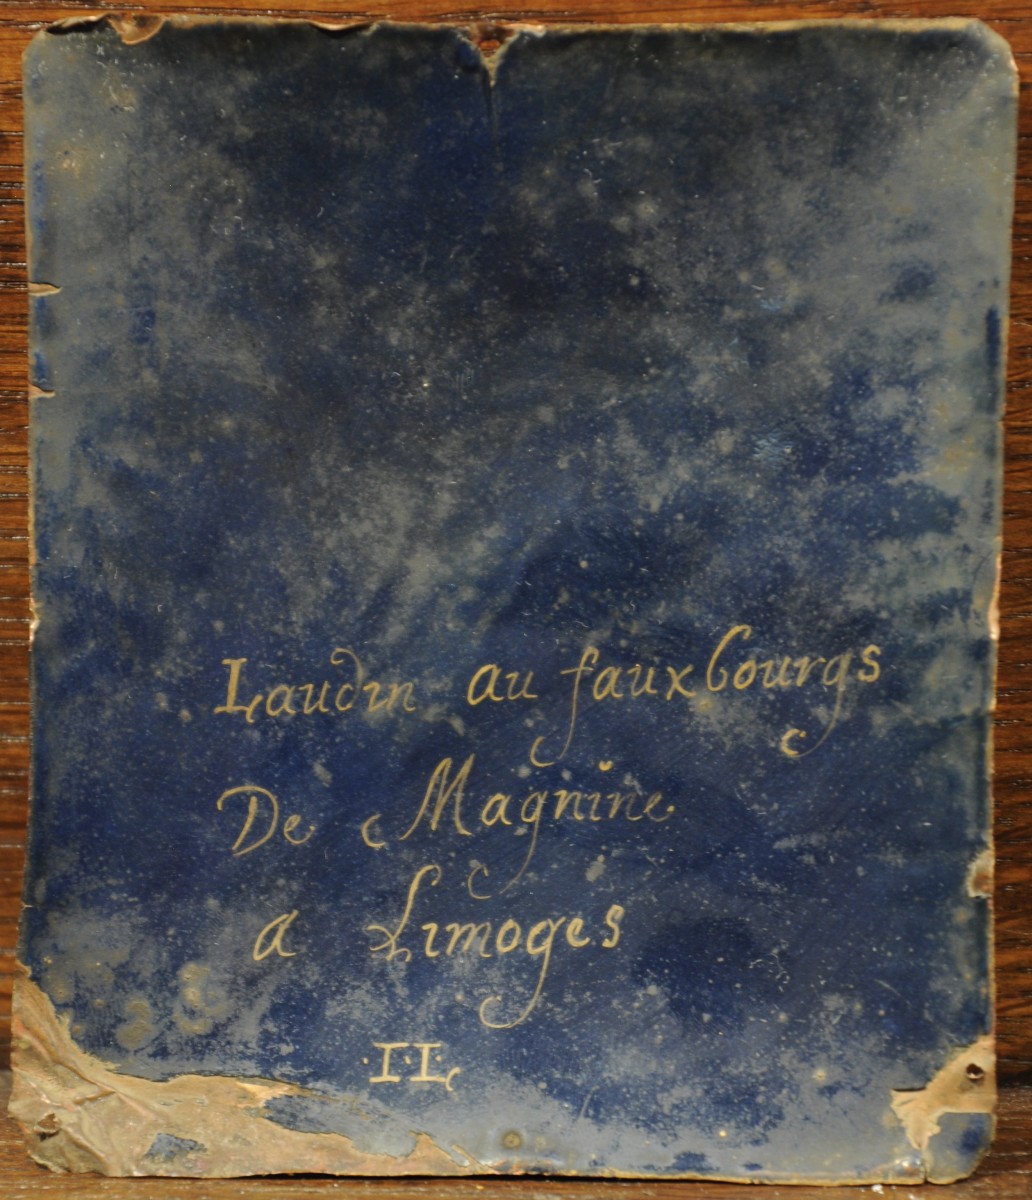 Laudin au fauxbourgs
De Magnine
a Limoges
·I·L